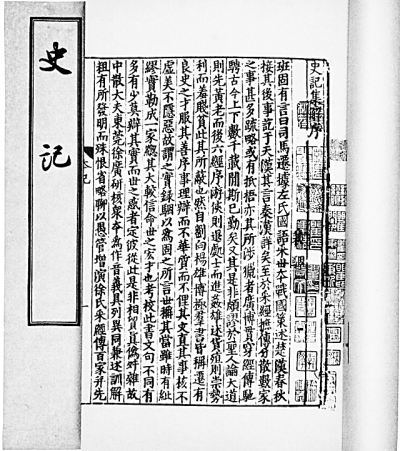 史記集解序
班固有言曰司馬遷據左氏國語采世本戰國策述楚漢春秋
接其後事訖于天漢其言秦漢詳矣至於采經摭傳分散數家
之事甚多疏略或有抵捂亦其所涉獵者廣博貫穿經傳馳
騁古今上下數千載閒斯已勤矣又其是非頗謬於聖人論大道
則先黃老而後六經序游俠則退處士而進姦雄述貨殖則崇勢
利而羞賤貧此其所蔽也然自劉向揚雄博極羣書皆稱遷有
良史之才服其善序事理辯而不華質而不俚其文直其事核不
虛美不隱惡故謂之實錄駰以為固之所言世稱其當雖時有紕
繆實勒成一家總其大較信命世之宏才也考校此書文句不同有
多有少莫辯其實而世之惑者定彼從此是非相貿真偽舛雜故
中散大夫東莞徐廣研核衆本為作音義具列異同兼述訓解
粗有所發明而殊恨省略聊以愚管增演徐氏采經傳百家并先
史記